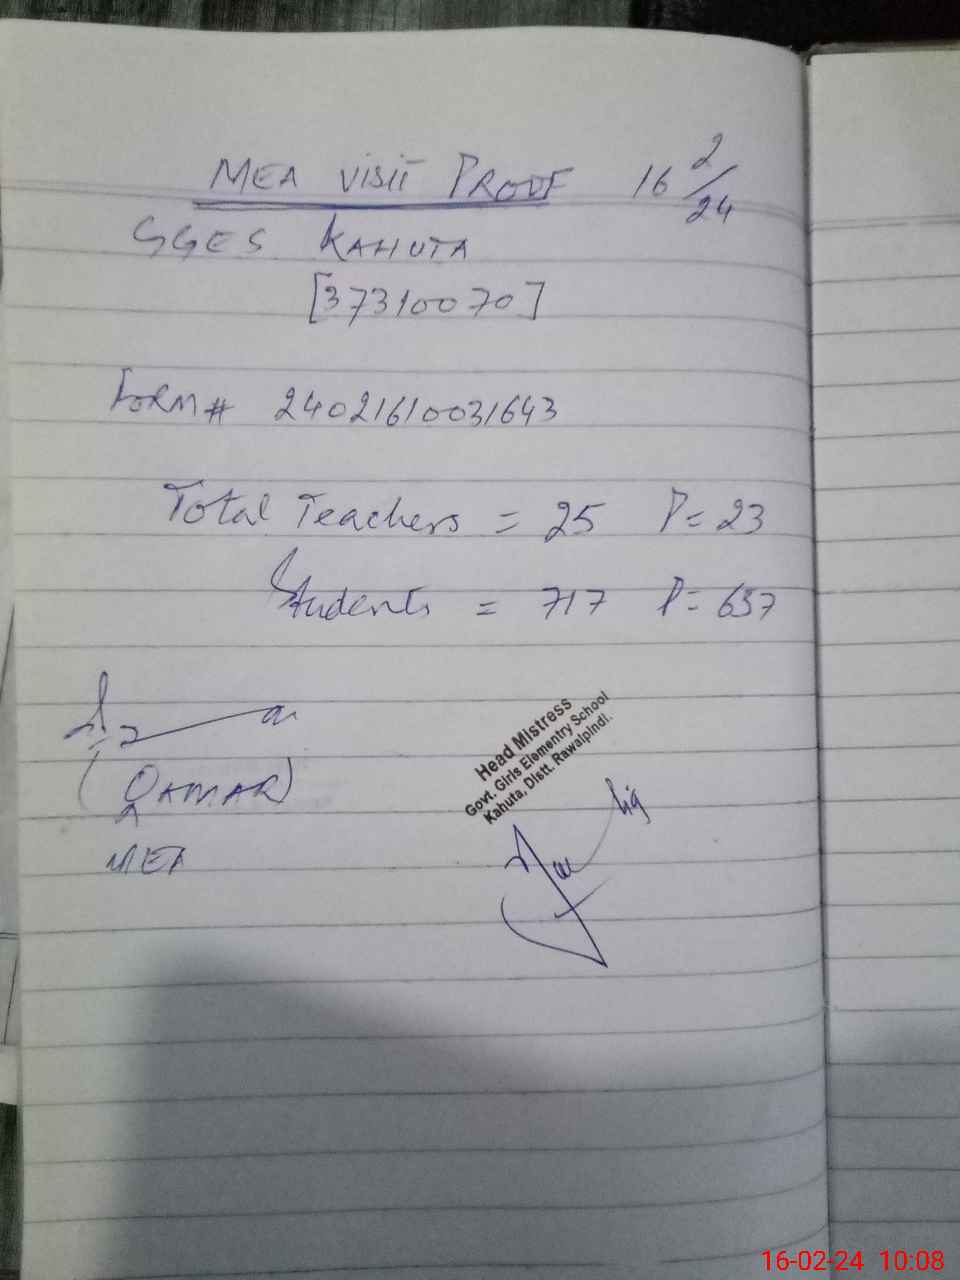 MEA VISIT PROOF 16 2/24
GGES KAHUTA
[37310070]
FORM# 24021610031643
Total Teachers = 25 P= 23
Students = 717 P= 657
(QAMAR)
MEA
Head Mistress
Govt. Girls Elementry School
Kahuta, Distt. Rawalpindi.
16-02-24 10:08